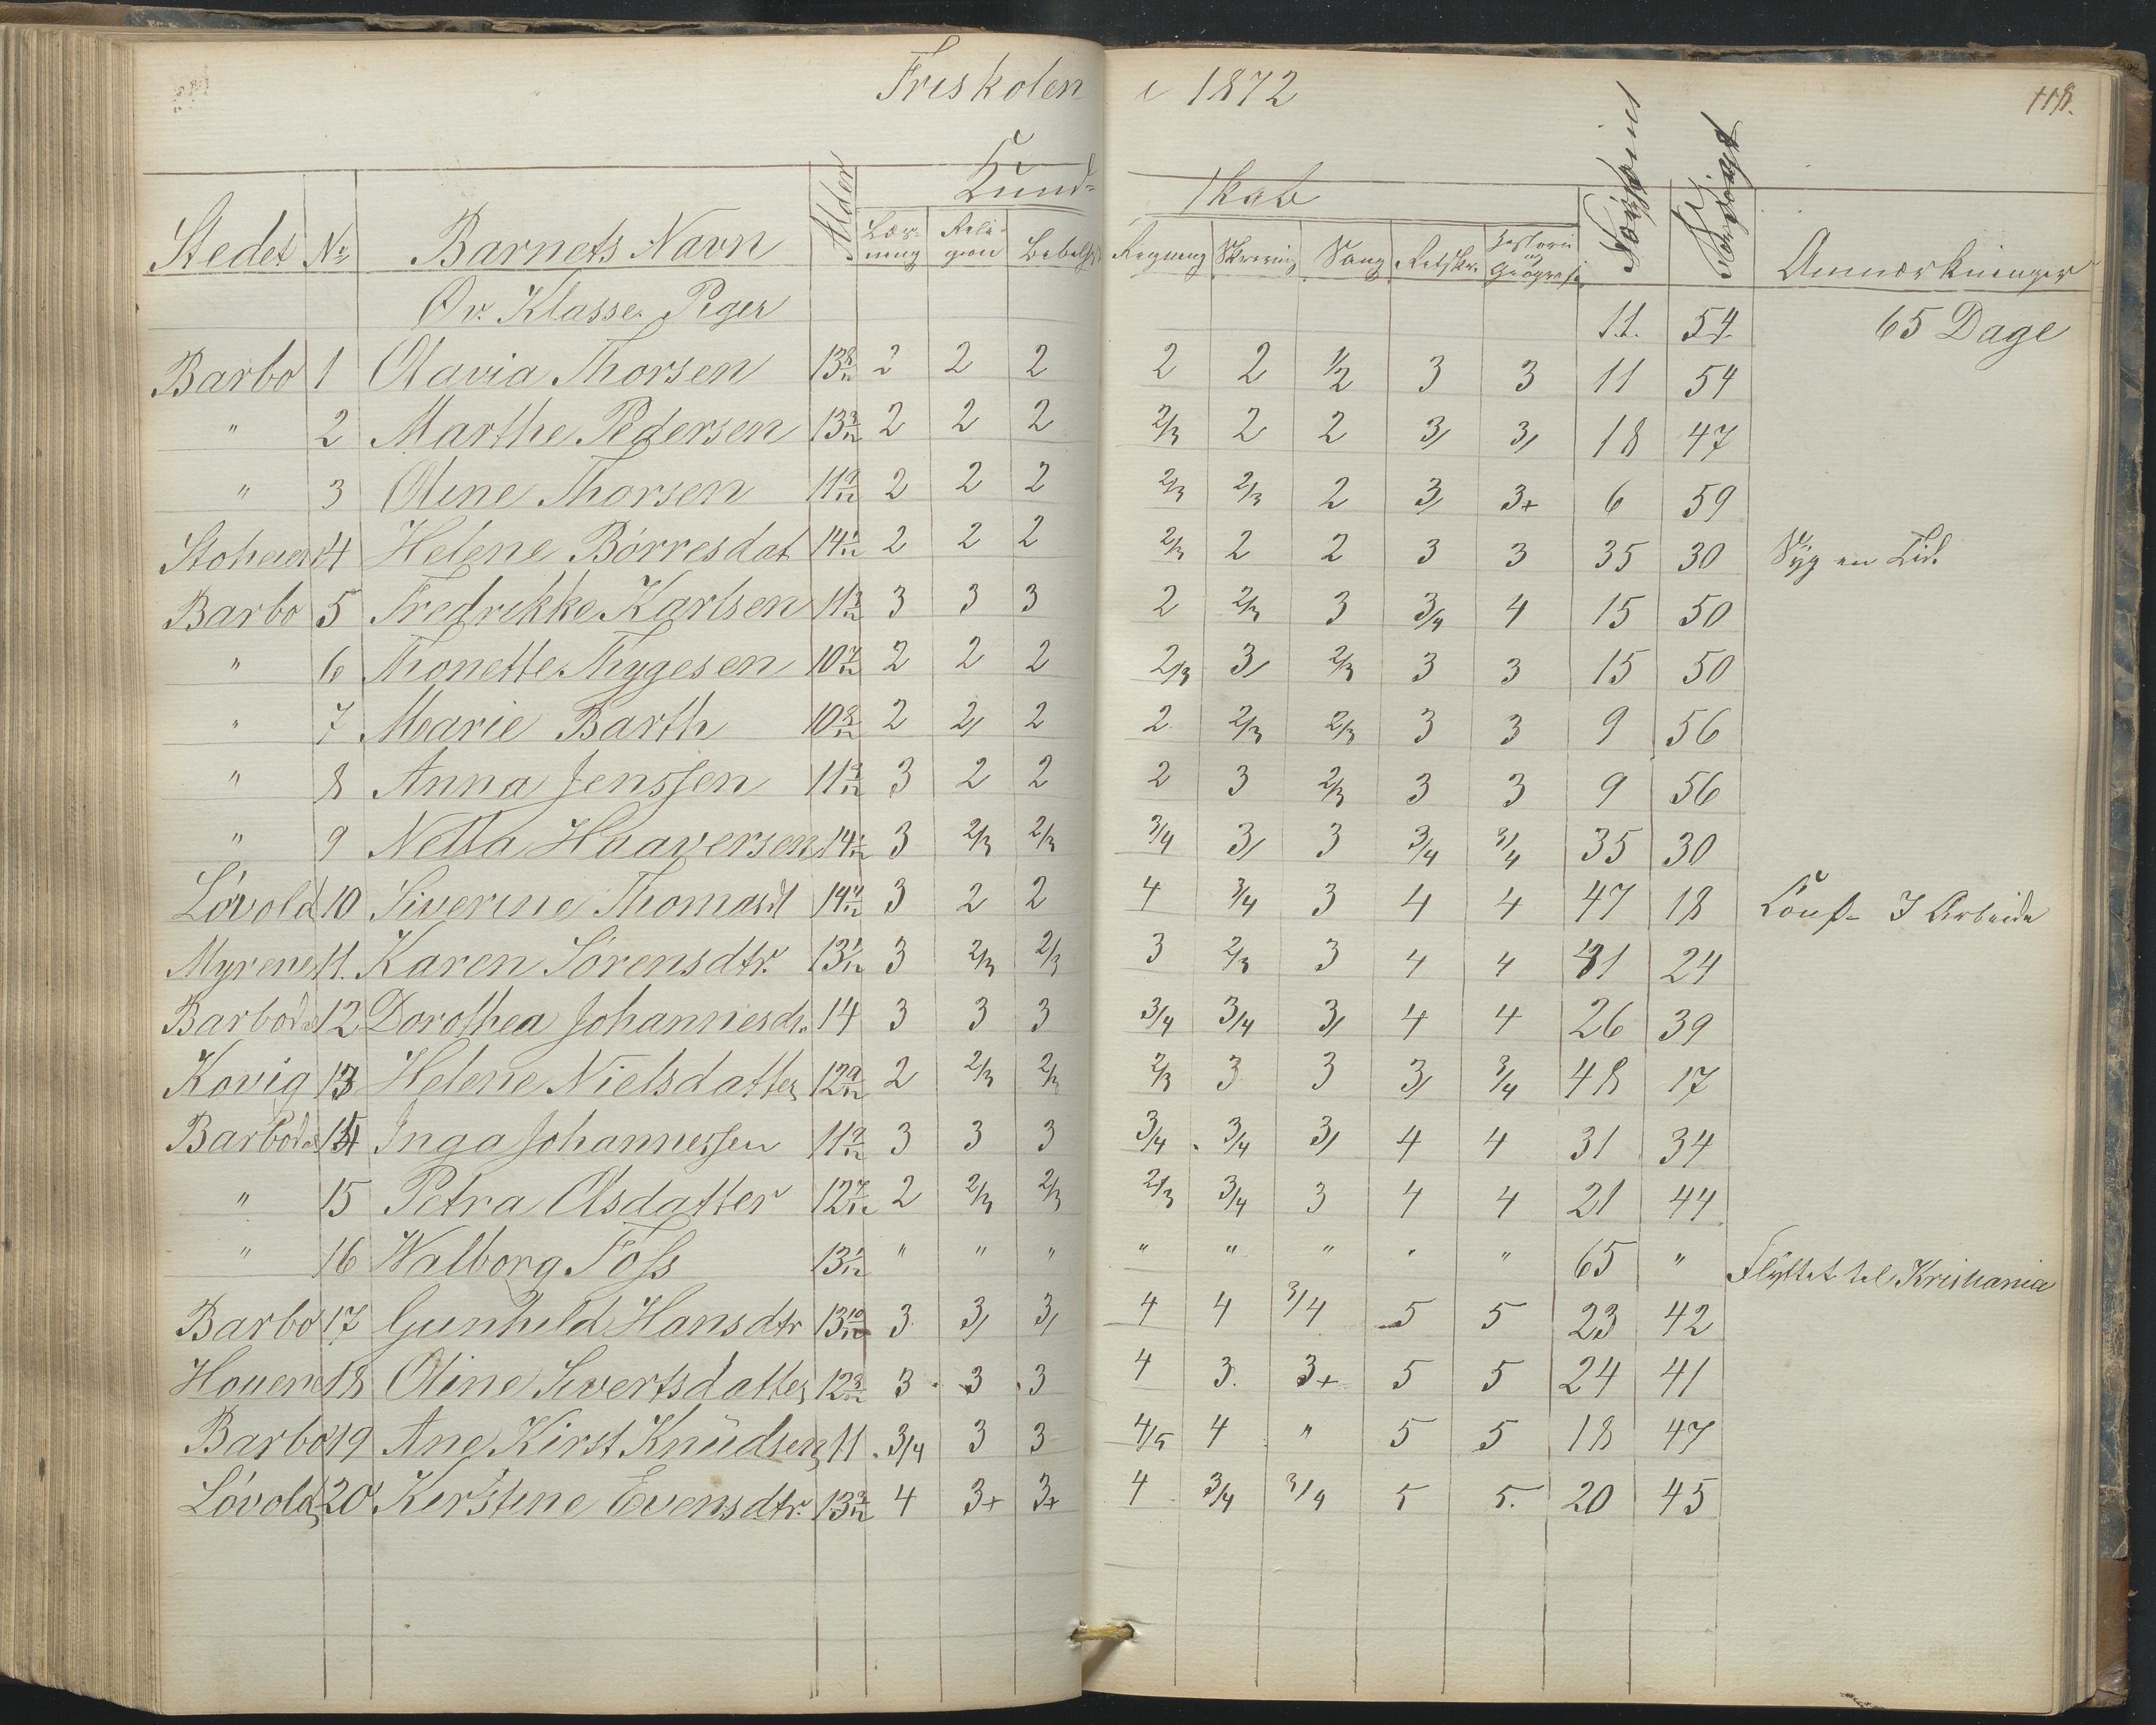 Friskolen i 1872
118.
Kund= skab
Stedet No Barnets Navn Alder Læs- ning Reli- gion Bibelh. Regning Skrivning Sang Retskr. Historie og Geografi Forsømt Anmærkninger
Øv. Klasse. Piger 11. 54. 65 Dage
Barbo 1 Olavia Thorsen 13 8/12 2 2 2 2 2 1/2 3 3 11 54
" 2 Marthe Pedersen 13 3/12 2 2 2 2/3 2 2 3/ 3/ 18 47
" 3 Oline Thorsen 11 9/12 2 2 2 2/3 2/3 2 3/ 3+ 6 59
4 Helene Börresdat 14 1/12 2 2 2 2/3 2 2 3 3 35 30 Syg en Tid.
Barbo 5 Fredrikke Karlsen 11 3/12 3 3 3 2 2/3 3 3/4 4 15 50
" 6 Thonette Thygesen 10 7/12 2 2 2 2/3 3/ 2/3 3 3 15 50
" 7 Marie Barth 10 8/12 2 2/ 2 2 2/3 2/3 3 3 9 56
" 8 Anna Jenssen 11 3/12 3 2 2 2 3 2/3 3 3 9 56
" 9 Netta Haaversen 14 1/12 3 2/3 2/3 3/4 3/ 3 3/4 3/4 35 30
Lövold 10 Siverine Thomasdt 14 4/12 3 2 2 4 3/4 3 4 4 47 18 Conf. I Arbeide
Myrene 11. Karen Sörensdtr. 13 1/12 3 2/3 2/3 3 2/3 3 4 4 41 24
12 Dorothea Johannesdr. 14 3 3 3 3/4 3/4 3/ 4 4 26 39
Kovig 13 Helene Nielsdatter 12 9/12 2 2/3 2/3 2/3 3 3 3/ 3/4 48 17
14 Inga Johannessen 11 9/12 3 3 3 3/4 3/4 3/ 4 4 31 34
" 15 Petra Olsdatter 12 7/12 2 2/3 2/3 2/3 3/4 3 4 4 21 44
" 16 Walborg Foss 13 1/12 " " " " " " " " 65 " Flyttet til Kristiania
Barbo 17 Gunhild Hansdtr 13 10/12 3 3/ 3/ 4 4 3/4 5 5 23 42
Houene 18 Oline Sivertsdatter 12 3/12 3 3 3 4 3. 3+ 5 5 24 41
Barbo 19 Ane Kirst Knüdsen 11 3/4 3 3 4/5 4 " 5 5 18 47
Lövold 20 Kirstine Evensdtr. 13 3/12 4 3+ 3+ 4 3/4 3/4 5 5. 20 45